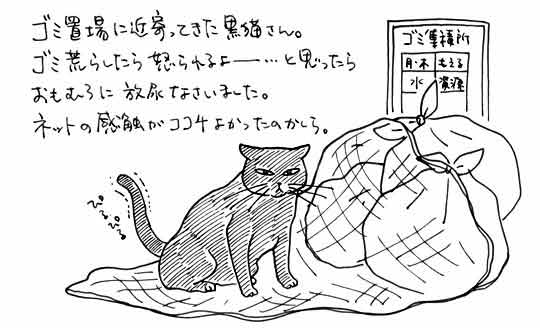 ゴミ置場に近寄ってきた黒猫さん。
ゴミ荒らしたら怒られるよー…と思ったら
おもむろに放尿なさいました。
ネットの感触がココチよかったのかしら。
ゴミ集積所
月・木 もえる
水 資源
ぷるぷる